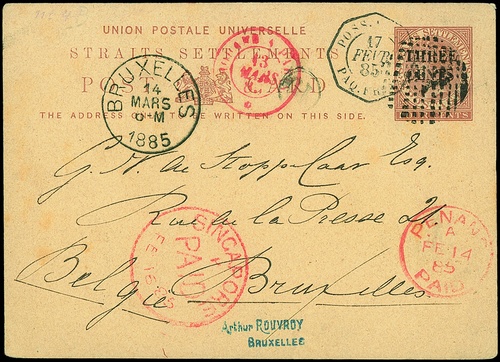 UNION POSTALE UNIVERSELLE
STRAITS SETTLEMENTS
POST CARD
THE ADDRESS ONLY TO BE WRITTEN ON THIS SIDE.
BRUXELLES
14
MARS
1885
13
MARS
17
FEVR
85
THREE
CENTS
Esq.
Rue de la Presse 21
Belgie Bruxelles
SINGAPORE
PAID
PENANG
A
FE 14
85
PAID
Arthur ROUVROY
BRUXELLES